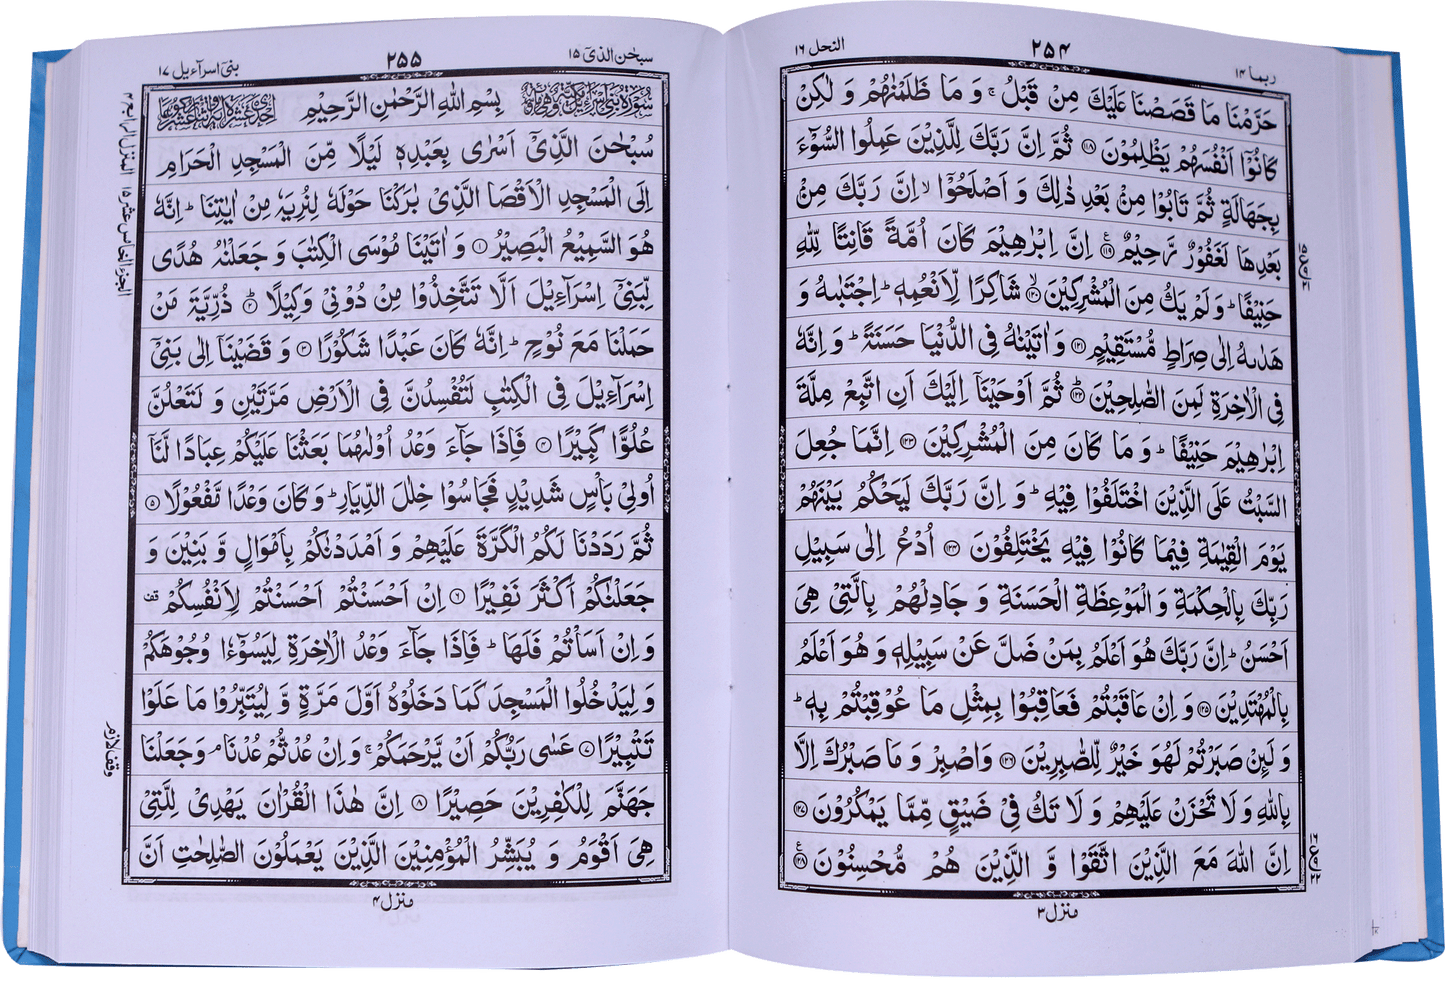 ربما ۱۴
۲۵۴
النحل ۱۶
حَرَّمْنَا مَا قَصَصْنَا عَلَيْكَ مِنْ قَبْلُ ۚ وَ مَا ظَلَمْنٰهُمْ وَ لٰكِنْ
كَانُوْۤا اَنْفُسَهُمْ يَظْلِمُوْنَ ۝۱۱۸ ثُمَّ اِنَّ رَبَّكَ لِلَّذِيْنَ عَمِلُوا السُّوْٓءَ
بِجَهَالَةٍ ثُمَّ تَابُوْا مِنْۢ بَعْدِ ذٰلِكَ وَ اَصْلَحُوْۤا ۙ اِنَّ رَبَّكَ مِنْۢ
بَعْدِهَا لَغَفُوْرٌ رَّحِيْمٌ ۝۱۱۹ اِنَّ اِبْرٰهِيْمَ كَانَ اُمَّةً قَانِتًا لِّلّٰهِ
حَنِيْفًا ؕ وَ لَمْ يَكُ مِنَ الْمُشْرِكِيْنَ ۝۱۲۰ۙ شَاكِرًا لِّاَنْعُمِهٖ ؕ اِجْتَبٰىهُ وَ
هَدٰىهُ اِلٰى صِرَاطٍ مُّسْتَقِيْمٍ ۝۱۲۱ وَ اٰتَيْنٰهُ فِى الدُّنْيَا حَسَنَةً ؕ وَ اِنَّهٗ
فِى الْاٰخِرَةِ لَمِنَ الصّٰلِحِيْنَ ۝۱۲۲ؕ ثُمَّ اَوْحَيْنَاۤ اِلَيْكَ اَنِ اتَّبِعْ مِلَّةَ
اِبْرٰهِيْمَ حَنِيْفًا ؕ وَ مَا كَانَ مِنَ الْمُشْرِكِيْنَ ۝۱۲۳ اِنَّمَا جُعِلَ
السَّبْتُ عَلَى الَّذِيْنَ اخْتَلَفُوْا فِيْهِ ؕ وَ اِنَّ رَبَّكَ لَيَحْكُمُ بَيْنَهُمْ
يَوْمَ الْقِيٰمَةِ فِيْمَا كَانُوْا فِيْهِ يَخْتَلِفُوْنَ ۝۱۲۴ اُدْعُ اِلٰى سَبِيْلِ
رَبِّكَ بِالْحِكْمَةِ وَ الْمَوْعِظَةِ الْحَسَنَةِ وَ جَادِلْهُمْ بِالَّتِىْ هِىَ
اَحْسَنُ ؕ اِنَّ رَبَّكَ هُوَ اَعْلَمُ بِمَنْ ضَلَّ عَنْ سَبِيْلِهٖ وَ هُوَ اَعْلَمُ
بِالْمُهْتَدِيْنَ ۝۱۲۵ وَ اِنْ عَاقَبْتُمْ فَعَاقِبُوْا بِمِثْلِ مَا عُوْقِبْتُمْ بِهٖ ؕ
وَ لَئِنْ صَبَرْتُمْ لَهُوَ خَيْرٌ لِّلصّٰبِرِيْنَ ۝۱۲۶ وَاصْبِرْ وَ مَا صَبْرُكَ اِلَّا
بِاللّٰهِ وَ لَا تَحْزَنْ عَلَيْهِمْ وَ لَا تَكُ فِىْ ضَيْقٍ مِّمَّا يَمْكُرُوْنَ ۝۱۲۷
اِنَّ اللّٰهَ مَعَ الَّذِيْنَ اتَّقَوْا وَّ الَّذِيْنَ هُمْ مُّحْسِنُوْنَ ۝۱۲۸
منزل ۳
سبحٰن الذیٓ ۱۵
۲۵۵
بنیٓ اسرآءیل ۱۷
بِسْمِ اللّٰهِ الرَّحْمٰنِ الرَّحِيْمِ
سُبْحٰنَ الَّذِىْۤ اَسْرٰى بِعَبْدِهٖ لَيْلًا مِّنَ الْمَسْجِدِ الْحَرَامِ
اِلَى الْمَسْجِدِ الْاَقْصَا الَّذِىْ بٰرَكْنَا حَوْلَهٗ لِنُرِيَهٗ مِنْ اٰيٰتِنَا ؕ اِنَّهٗ
هُوَ السَّمِيْعُ الْبَصِيْرُ ۝۱ وَ اٰتَيْنَا مُوْسَى الْكِتٰبَ وَ جَعَلْنٰهُ هُدًى
لِّبَنِىْۤ اِسْرَآءِيْلَ اَلَّا تَتَّخِذُوْا مِنْ دُوْنِىْ وَكِيْلًا ۝۲ؕ ذُرِّيَّةَ مَنْ
حَمَلْنَا مَعَ نُوْحٍ ؕ اِنَّهٗ كَانَ عَبْدًا شَكُوْرًا ۝۳ وَ قَضَيْنَاۤ اِلٰى بَنِىْۤ
اِسْرَآءِيْلَ فِى الْكِتٰبِ لَتُفْسِدُنَّ فِى الْاَرْضِ مَرَّتَيْنِ وَ لَتَعْلُنَّ
عُلُوًّا كَبِيْرًا ۝۴ فَاِذَا جَآءَ وَعْدُ اُوْلٰىهُمَا بَعَثْنَا عَلَيْكُمْ عِبَادًا لَّنَاۤ
اُولِىْ بَاْسٍ شَدِيْدٍ فَجَاسُوْا خِلٰلَ الدِّيَارِ ؕ وَ كَانَ وَعْدًا مَّفْعُوْلًا ۝۵
ثُمَّ رَدَدْنَا لَكُمُ الْكَرَّةَ عَلَيْهِمْ وَ اَمْدَدْنٰكُمْ بِاَمْوَالٍ وَّ بَنِيْنَ وَ
جَعَلْنٰكُمْ اَكْثَرَ نَفِيْرًا ۝۶ اِنْ اَحْسَنْتُمْ اَحْسَنْتُمْ لِاَنْفُسِكُمْ قف
وَ اِنْ اَسَاْتُمْ فَلَهَا ؕ فَاِذَا جَآءَ وَعْدُ الْاٰخِرَةِ لِيَسُوْٓءٗا وُجُوْهَكُمْ
وَ لِيَدْخُلُوا الْمَسْجِدَ كَمَا دَخَلُوْهُ اَوَّلَ مَرَّةٍ وَّ لِيُتَبِّرُوْا مَا عَلَوْا
تَتْبِيْرًا ۝۷ عَسٰى رَبُّكُمْ اَنْ يَّرْحَمَكُمْ ۚ وَ اِنْ عُدْتُّمْ عُدْنَا ۘ وَجَعَلْنَا
جَهَنَّمَ لِلْكٰفِرِيْنَ حَصِيْرًا ۝۸ اِنَّ هٰذَا الْقُرْاٰنَ يَهْدِىْ لِلَّتِىْ
هِىَ اَقْوَمُ وَ يُبَشِّرُ الْمُؤْمِنِيْنَ الَّذِيْنَ يَعْمَلُوْنَ الصّٰلِحٰتِ اَنَّ
وقف لازم
منزل ۴